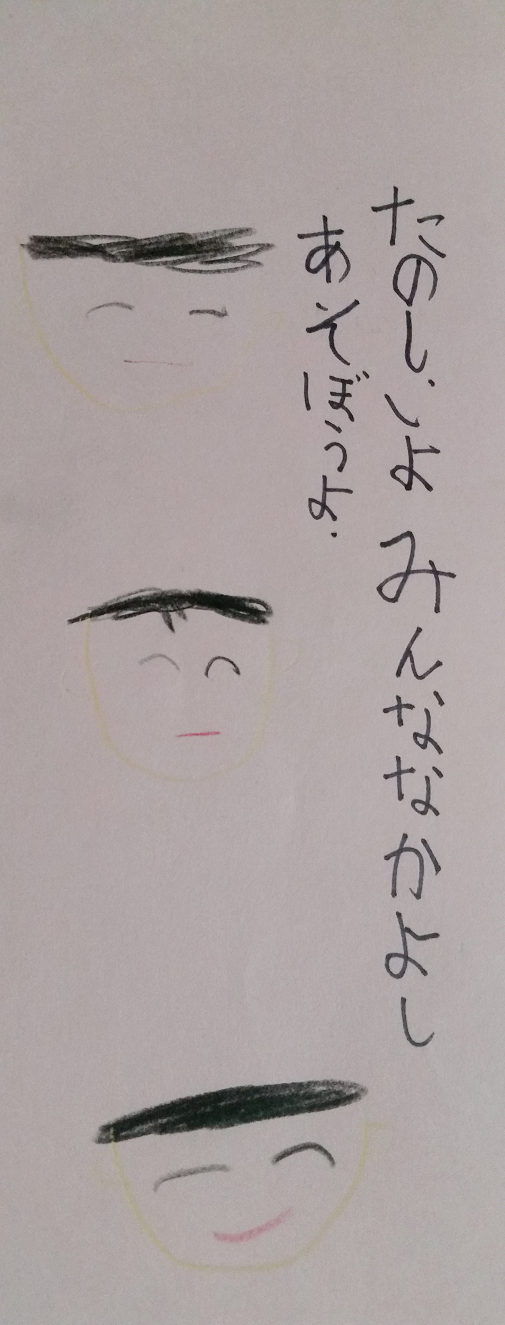 たのしいよ みんななかよし
あそぼうよ.